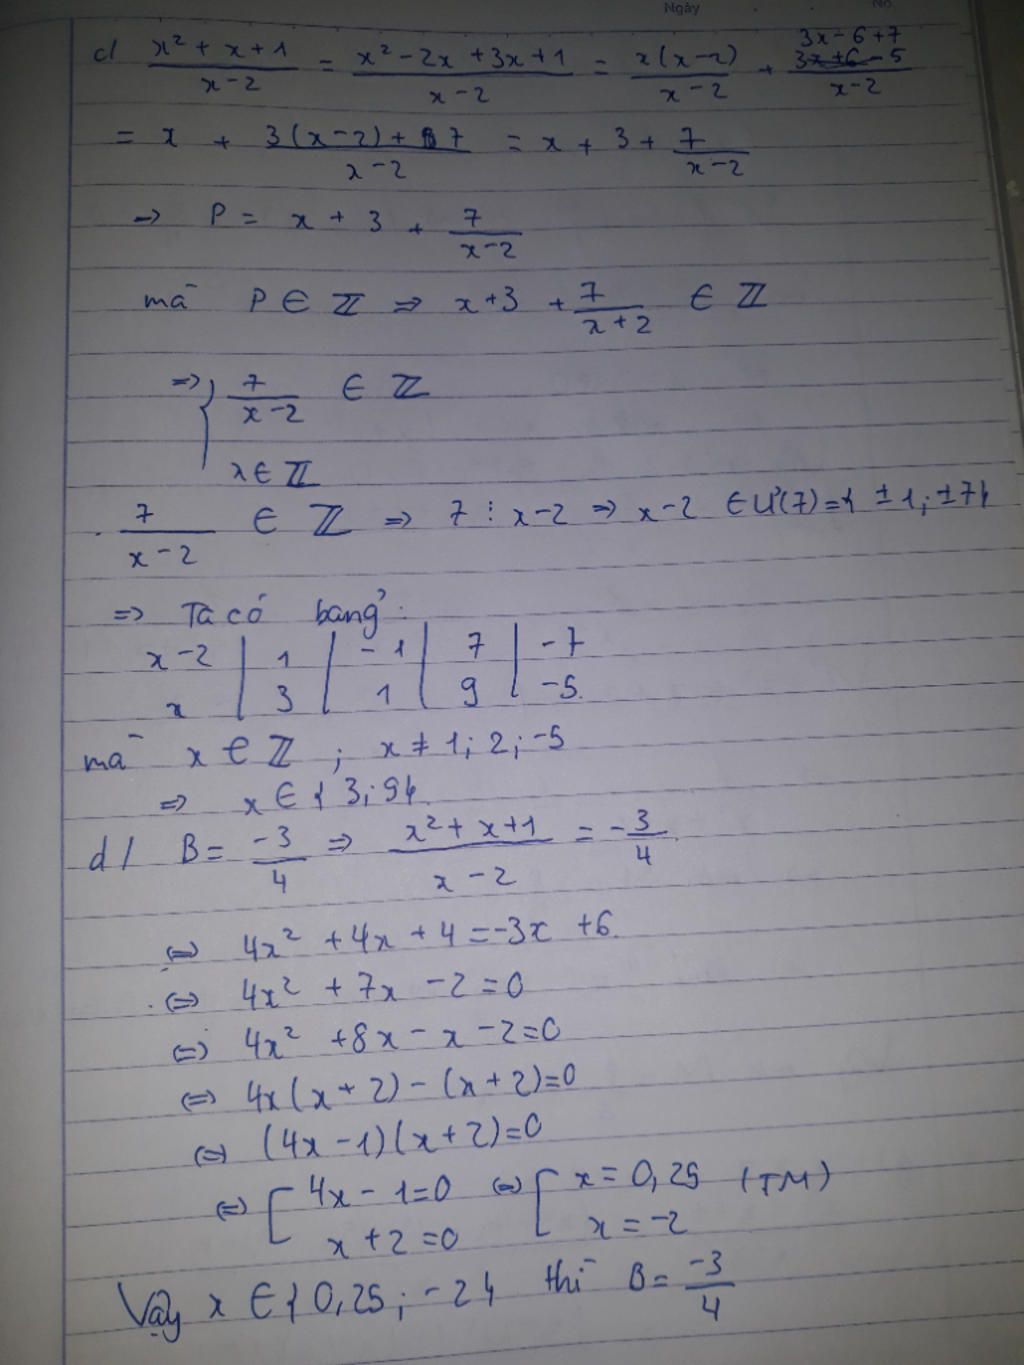 Ngày No.
c/ (x² + x + 1)/(x - 2) = (x² - 2x + 3x + 1)/(x - 2) = x(x - 2)/(x - 2) + (3x - 6 + 7)/(x - 2)
= x + (3(x - 2) + 7)/(x - 2) = x + 3 + 7/(x - 2)
→ P = x + 3 + 7/(x - 2)
mà P ∈ ℤ ⇒ x + 3 + 7/(x + 2) ∈ ℤ
⇒ { 7/(x - 2) ∈ ℤ
x ∈ ℤ
7/(x - 2) ∈ ℤ ⇒ 7 ⋮ x - 2 ⇒ x - 2 ∈ Ư(7) = { ±1; ±7}
⇒ Ta có bảng:
x - 2 | 1 | -1 | 7 | -7
x | 3 | 1 | 9 | -5
mà x ∈ ℤ ; x ≠ 1; 2; -5
⇒ x ∈ { 3; 9}.
d/ B = -3/4 ⇒ (x² + x + 1)/(x - 2) = -3/4
⇔ 4x² + 4x + 4 = -3x + 6.
⇔ 4x² + 7x - 2 = 0
⇔ 4x² + 8x - x - 2 = 0
⇔ 4x(x + 2) - (x + 2) = 0
⇔ (4x - 1)(x + 2) = 0
⇔ [ 4x - 1 = 0 ⇔ [ x = 0,25 (TM)
x + 2 = 0 x = -2
Vậy x ∈ { 0,25; -2} thì B = -3/4